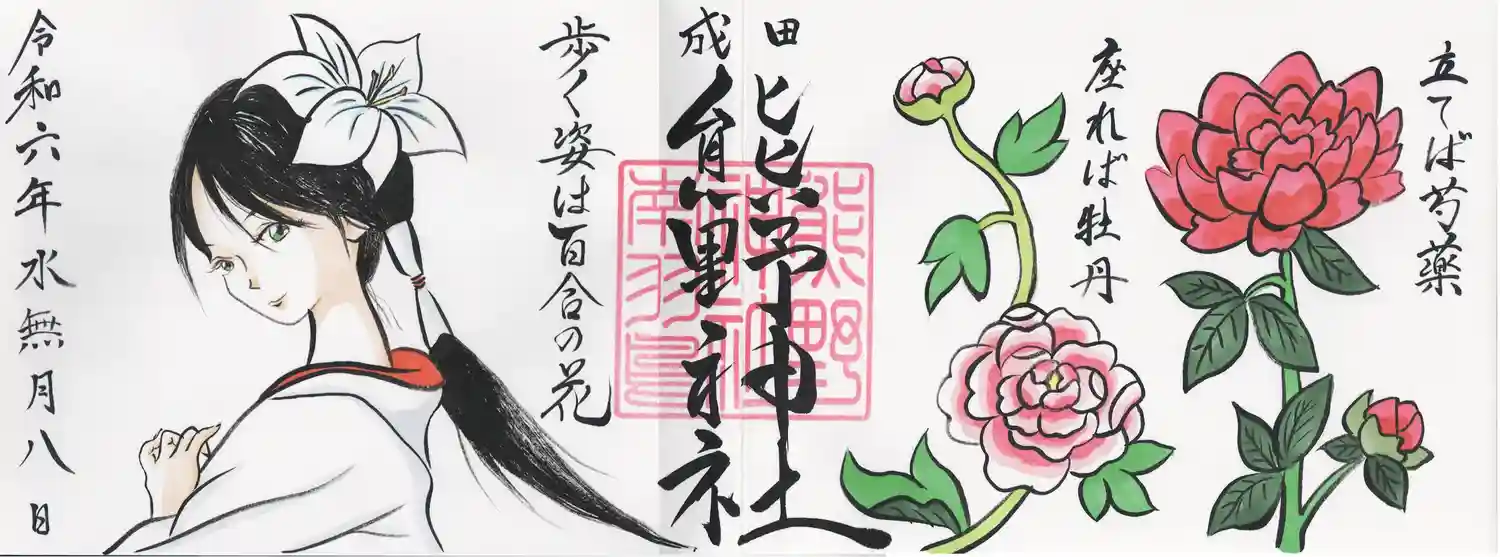 立てば芍薬
座れば牡丹
成田
熊野神社
熊野
神社
南羽鳥
歩く姿は百合の花
令和六年水無月八日